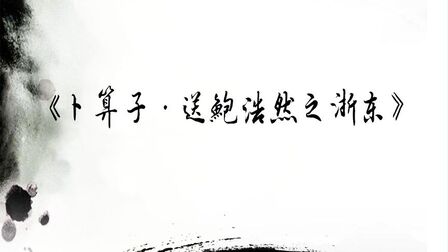 《卜算子·送鲍浩然之浙东》